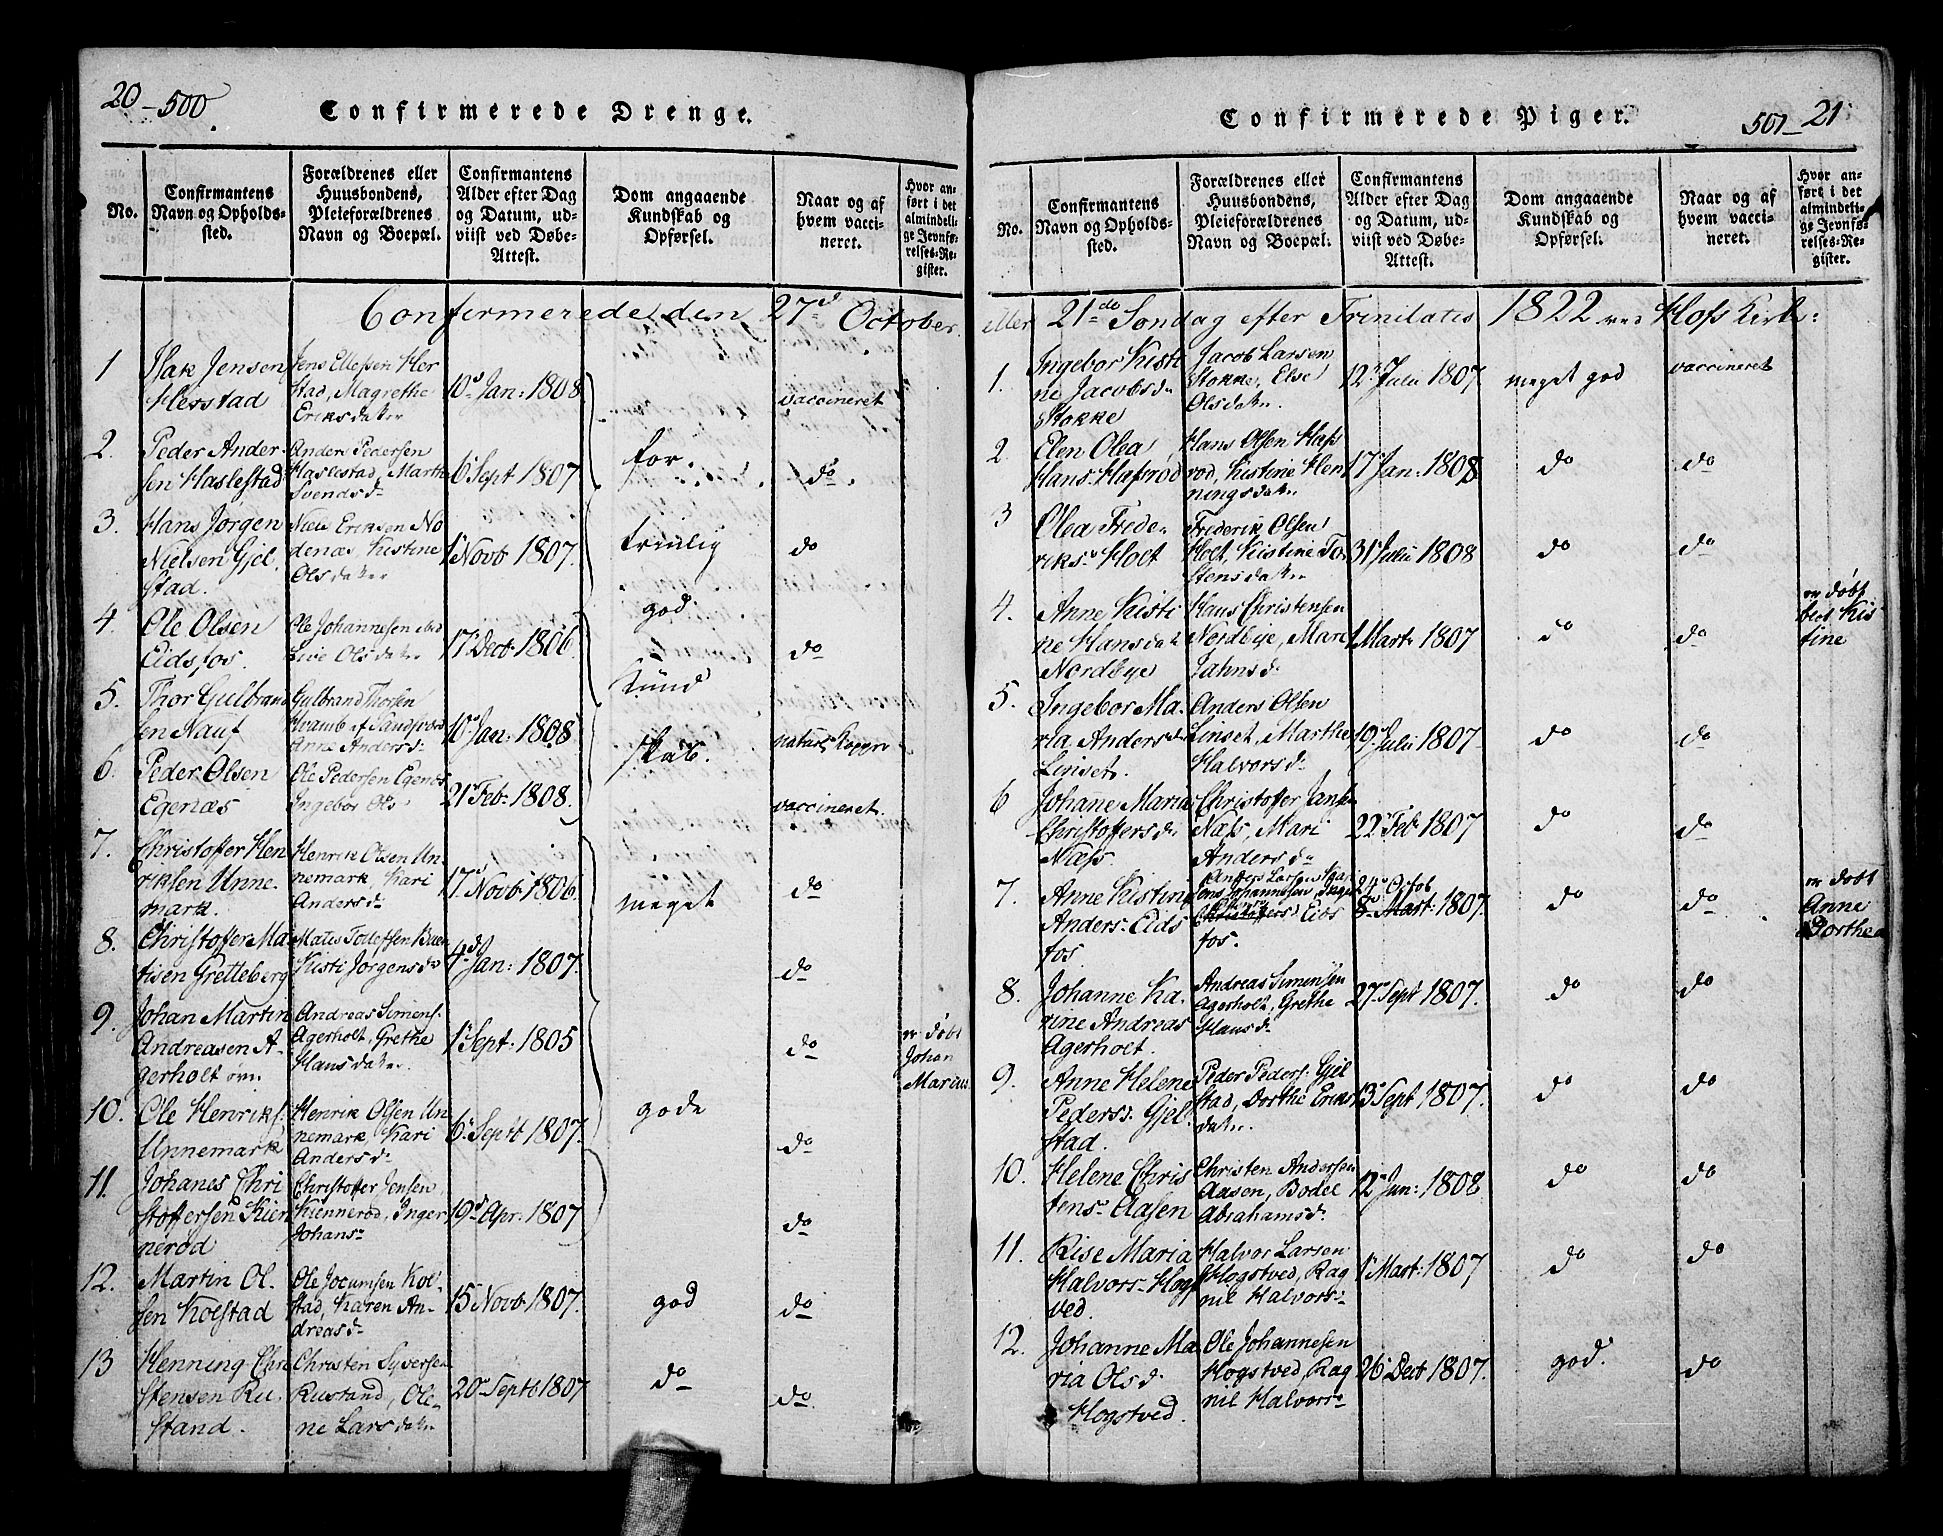 20 - 500.
Confirmerede Drenge.
No.
Confirmantens
Navn og Opholds-
sted.
Forældrenes eller
Huusbondens,
Pleieforældrenes
Navn og Boepæl.
Confirmantens
Alder efter Dag
og Datum, ud-
viist ved Døbe-
Attest.
Dom angaaende
Kundskab og
Opførsel.
Naar og af
hvem vacci-
neret.
Hvor an-
ført i det
almindeli-
ge Jevnfø-
relses-Re-
gister.
Confirmerede den 27d October
1
Isak Jensen
Herstad
Jens Ellefsen Her
stad, Magrethe
Eriksdater
10d Jan: 1808
vaccineret
2.
Peder Ander
sen Haslestad
Anders Pedersen
Haslestad, Marthe
Svendsd
6 Sept 1807
for.
do.
3.
Hans Jørgen
Nielsen Gjel
stad.
Niels Eriksen No
denæs Kistine
Olsdater
1 Novb 1807.
trinlig
do
4.
Ole Olsen
Eidsfos.
Ole Johannesen
Live Olsdater
17 Decb 1806.
god
do
5.
Thor Gulbrand
sen Nauf
Gulbrand Thorsen
Hvamb af Sandsvær
Anne Andersd:
10 Jan: 1808
Kund
naturl Kopper
6.
Peder Olsen
Egenæs
Ole Pedersen Egenæs
Ingebor Ols
21 Feb: 1808.
skab.
vaccineret.
7.
Christoffer Hen
riksen Unne
mark.
Henrik Olsen Un
nemark, Kari
Andersd
17d Novb 1806.
meget
do
8.
Christoffer Ma
tisen Gretteberg
Mates Tollefsen
Kisti Jørgensd
4d Jan: 1807.
do
9.
Johan Martin
Andreasen A-
gerholt
Andreas Simens:
Agerholt, Grethe
Hansdater.
1 Sept: 1805
do
er døbt
Johan
Marius.
10.
Ole Henriks:
Unnemark
Henrik Olsen Un
nemark, Kari
Andersd
6 Septb 1807.
gode
do
11.
Johanes Chri
stoffersen Kien
nerød
Christoffer Jensen
Kiennerød, Inger
Johans
19d Apr: 1807
do
12.
Martin Ol-
sen Kolstad
Ole Jocumsen Kol-
stad, Karen An-
dreasd
15 Novb 1807.
god
do
13
Henning Chri
stensen Ru
stand.
Christen Syversen
Rustand, Ole-
ne Larsdater
20 Septb 1807
do
do
Confirmerede Piger.
501 - 21
No.
Confirmantens
Navn og Opholds-
sted.
Forældrenes eller
Huusbondens,
Pleieforældrenes
Navn og Boepæl.
Confirmantens
Alder efter Dag
og Datum, ud-
viist ved Døbe-
Attest.
Dom angaaende
Kundskab og
Opførsel.
Naar og af
hvem vacci-
neret.
Hvor an-
ført i det
almindeli-
ge Jevnfø-
relses-Re-
gister.
eller 21de Søndag efter Trinitatis 1822 ved Hofs Kirke:
1.
Ingebor Kisti
ne Jacobsd
Stokke
Jacob Larsen
Stokke, Else
Olsdater.
12 Julii 1807
meget god
vaccineret
2.
Elen Olea
Hans: Hafsrød
Hans Olsen Hafs
rød, Kistine Hen
ningsdater
17 Jan: 1808
do
do
3
Olea Frede-
riks: Holt
Frederik Olsen
Holt, Kistine To
stensdater
31 Julii 1808
do
do
4.
Anne Kisti
ne Hansdat
Nordbye
Hans Christensen
Nordbye, Mari
Jahnsd:
1 Mart: 1807
do
do
er døbt
blot Kis
tine
5.
Ingebor Ma-
ria Andersd
Linset.
Anders Olsen
Linset, Marthe
Halvorsd:
19 Julii 1807
do
do
6
Johanne Maria
Christoffersd:
Næss.
Christoffer Jans:
Næss, Mari
Andersd
22 Feb 1807
do
do
7.
Anne Kistine
Anders: Eids
fos
Anders Larsen
Jens Johannesen Inge
Christoffersd: Eids
fos.
24 Octob
8 Mart: 1807.
do
do
er døbt
Anne
Dorthea
8.
Johanne Ka-
rine Andreas
Agerholt.
Andreas Simensen
Agerholt, Grethe
Hansd:
27 Sept 1807.
do
do
9.
Anne Helene
Pedersd: Gjel-
stad.
Peder Peders: Gjel
stad, Dorthe Eriks
dater.
13 Sept 1807.
do
do
10.
Helene Chris
tens: Aasen
Christen Andersen
Aasen, Bodel
Abrahamsd:
12 Jan: 1808
do
do
11.
Lise Maria
Halvors: Hogst
ved.
Halvor Larsen
Hogstved, Rag
nil Halvors:
1 Mart: 1807
do
do
12.
Johanne Ma
ria Olsd:
Hogstved.
Ole Johannesen
Hogstved, Rag
nil Halvors
26 Decb 1807.
god.
do